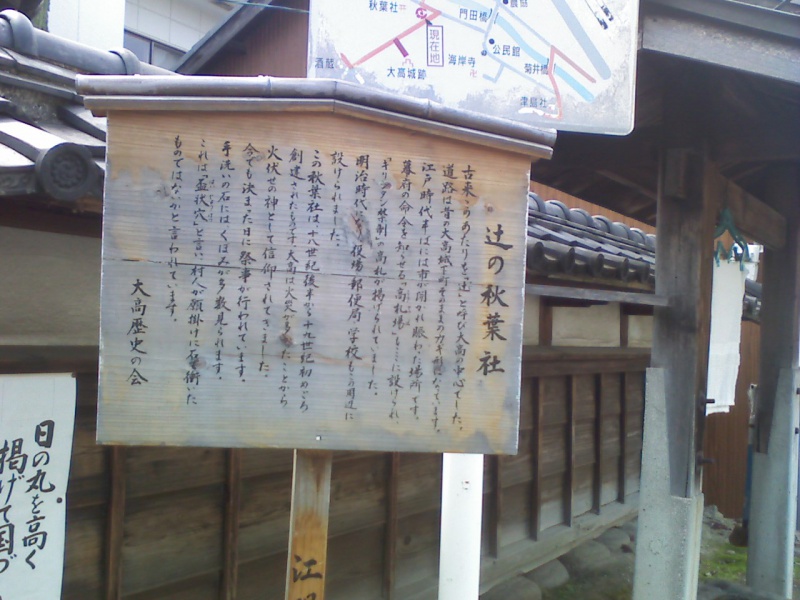 秋葉社
門田橋
現在地
公民館
酒蔵
大高城跡
海岸寺
菊井橋
津島社
辻の秋葉社
古来このあたりを「辻」と呼び大高の中心でした。
道路は昔の大高城下町そのままのカギ
なっています。
江戸時代半ばには市が開かれ賑わった場所です。
幕府の命令を知らせる「高札場」もここに設けられ、
キリシタン禁制の高札が掲げられていました。
明治時代には役場、郵便局、学校もこの周辺に
設けられました。
この秋葉社は、十八世紀後半から十九世紀初めごろ
創建されたものです。大高は火災が
ことから
火伏せの神として信仰されてきました。
今でも決まった日に祭事が行われています。
手洗いの石にはくぼみが多数見られます。
これは「盃状穴」と言い、村人が願掛けに石で衝いた
ものではないかと言われています。
大高歴史の会
日の丸を高く
掲げて国づ
江